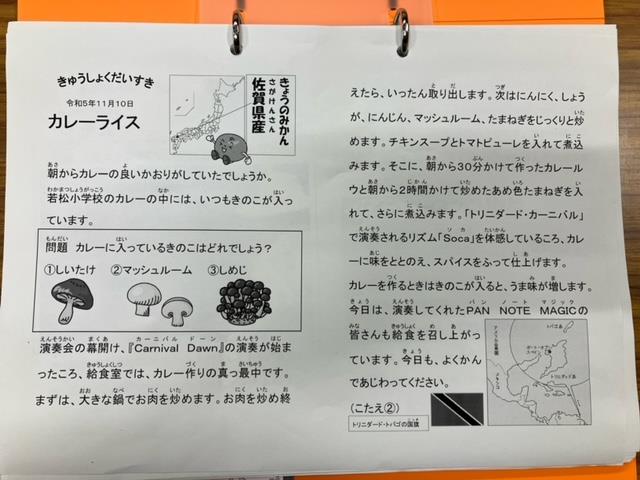 きゅうしょくだいすき
令和5年11月10日
カレーライス
きょうのみかん
さがけんさん
佐賀県産
朝からカレーの良いかおりがしていたでしょうか。
若松小学校のカレーの中には、いつもきのこが入っ
ています。
問題 カレーに入っているきのこはどれでしょう？
①しいたけ ②マッシュルーム ③しめじ
演奏会の幕開け、『Carnival Dawn』の演奏が始ま
ったころ、給食室では、カレー作りの真っ最中です。
まずは、大きな鍋でお肉を炒めます。お肉を炒め終
えたら、いったん取り出します。次はにんにく、しょう
が、にんじん、マッシュルーム、たまねぎをじっくりと炒
めます。チキンスープとトマトピューレを入れて煮込
みます。そこに、朝から30分かけて作ったカレール
ウと朝から2時間かけて炒めたあめ色たまねぎを入
れて、さらに煮込みます。「トリニダード・カーニバル」
で演奏されるリズム「Soca」を体感しているころ、カレ
ーに味をととのえ、スパイスをふって仕上げます。
カレーを作るときはきのこが入ると、うま味が増します。
今日は、演奏してくれたPAN NOTE MAGICの
皆さんも給食を召し上がっ
ています。今日も、よくかん
であじわってください。
(こたえ②)
トリニダード・トバゴの国旗